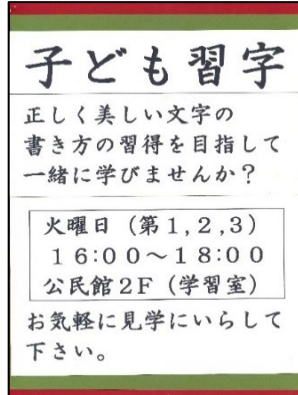 子ども習字
正しく美しい文字の
書き方の習得を目指して
一緒に学びませんか？
火曜日（第1,2,3）
16:00～18:00
公民館2F（学習室）
お気軽に見学にいらして
下さい。